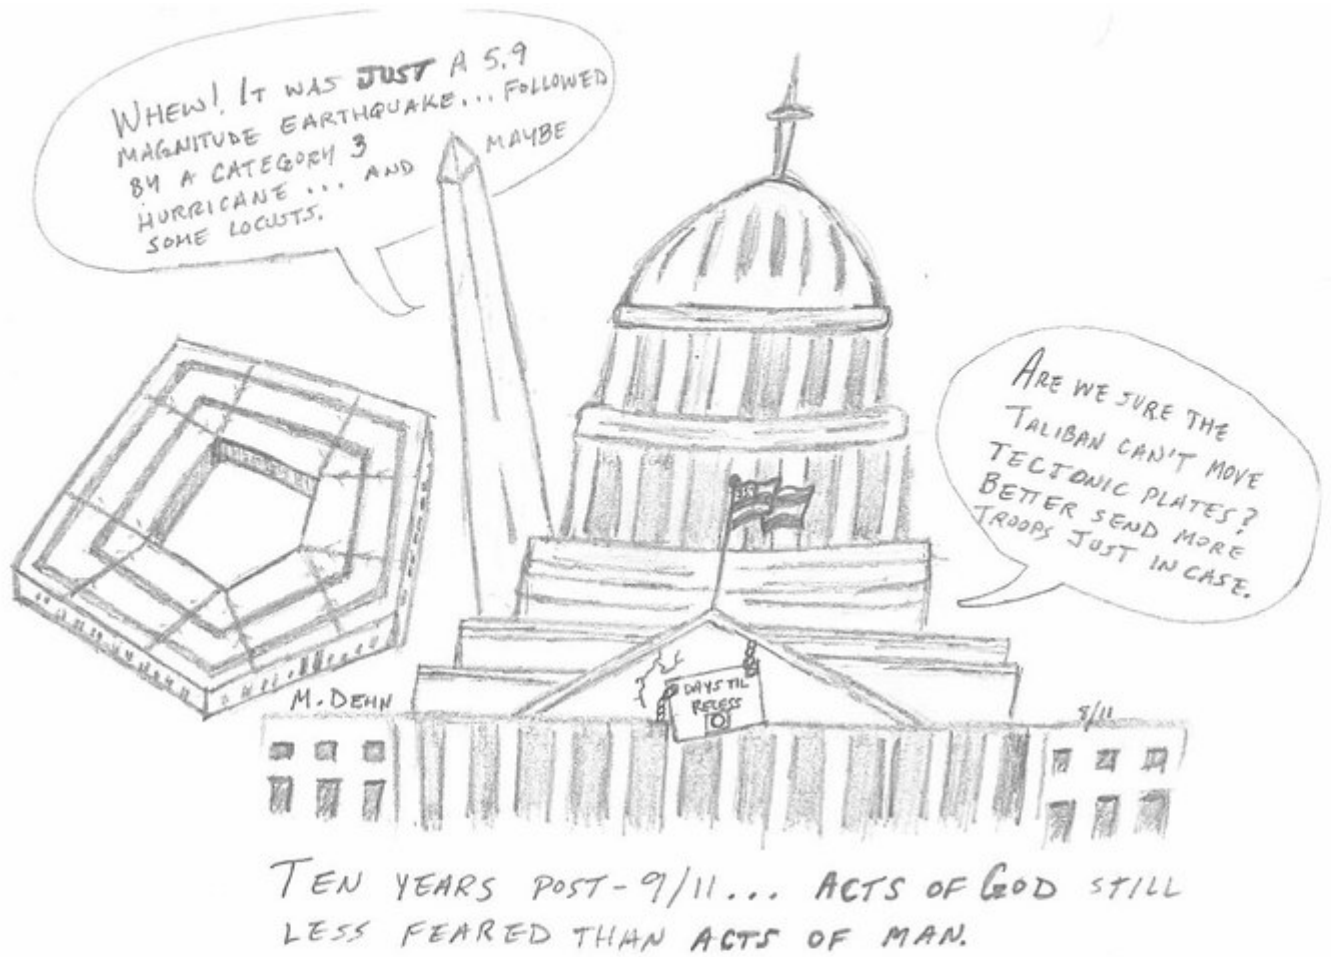 WHEW! IT WAS JUST A 5.9
MAGNITUDE EARTHQUAKE... FOLLOWED
BY A CATEGORY 3
HURRICANE... AND MAYBE
SOME LOCUSTS.
ARE WE SURE THE
TALIBAN CAN'T MOVE
TECTONIC PLATES?
BETTER SEND MORE
TROOPS JUST IN CASE.
DAYS TIL
RECESS
0
M. DEHN
8/11
TEN YEARS POST-9/11... ACTS OF GOD STILL
LESS FEARED THAN ACTS OF MAN.